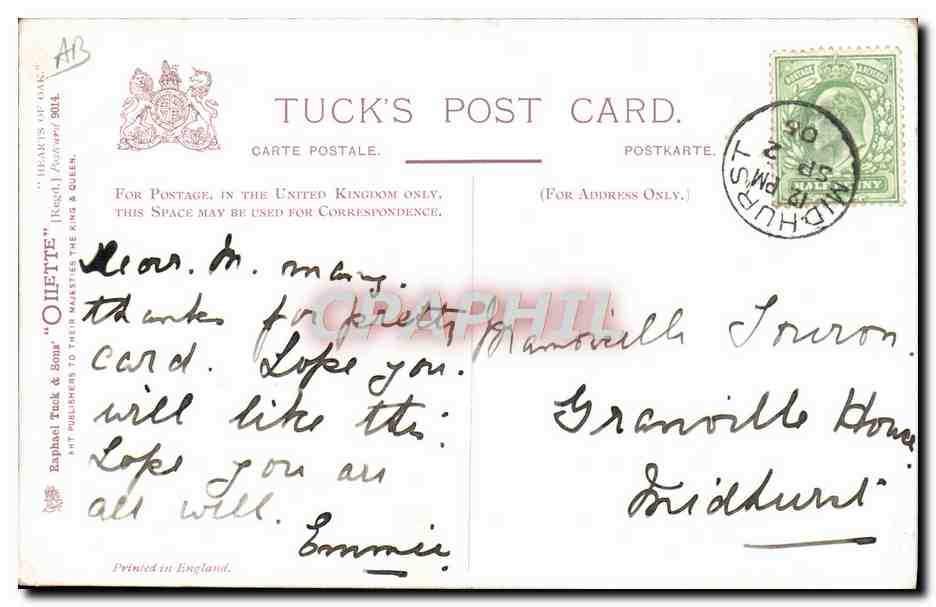 AB
"HEARTS OF OAK."
Raphael Tuck & Sons' "OILETTE" [Regd.] Postcard 9014.
ART PUBLISHERS TO THEIR MAJESTIES THE KING & QUEEN.
TUCK'S POST CARD.
CARTE POSTALE. POSTKARTE.
FOR POSTAGE, IN THE UNITED KINGDOM ONLY,
THIS SPACE MAY BE USED FOR CORRESPONDENCE.
(FOR ADDRESS ONLY.)
POSTAGE
HALFPENNY
MIDHURST
12 PM
SP 2
05
Dear. M. mary.
thanks for pretty
card. Hope you.
will like this.
Hope you are
all well.
Emmie.
CPAPHIL
Granville House
Midhurst
Printed in England.